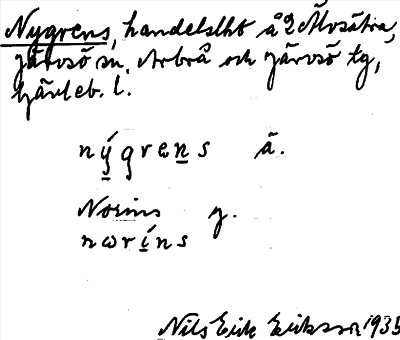 Nygrens, handelslht å 2 Älvsätra,
Järvsö sn. Arbrå och Järvsö tg,
Gävleb. l.
nýgrens ä.
Norins y.
nωríns
Nils Erik Eriksson 1935